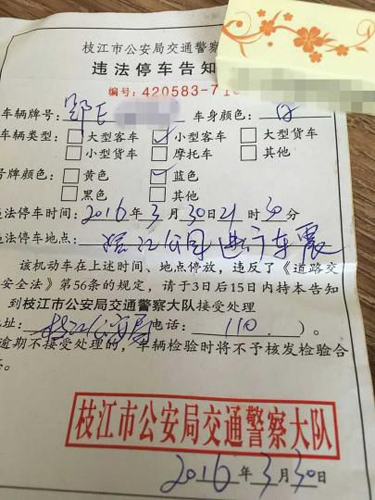 枝江市公安局交通警察
违法停车告知
编号:420583-71
车辆牌号: 鄂E 车身颜色: 白
车辆类型: 大型客车 ✓小型客车 大型货车
小型货车 摩托车 其他
号牌颜色: 黄色 ✓蓝色
黑色 其他
违法停车时间: 2016年3月30日21时30分
违法停车地点: 滨江公园进行车震
该机动车在上述时间、地点停放,违反了《道路交
安全法》第56条的规定,请于3日后15日内持本告知
到枝江市公安局交通警察大队接受处理
地址: 枝江公安局 电话: 110 )。
逾期不接受处理的,车辆检验时将不予核发检验合
枝江市公安局交通警察大队
2016年3月30日